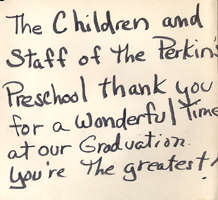 The Children and
Staff of the Perkin's
Preschool thank you
for a wonderful time
at our Graduation.
You're the greatest!